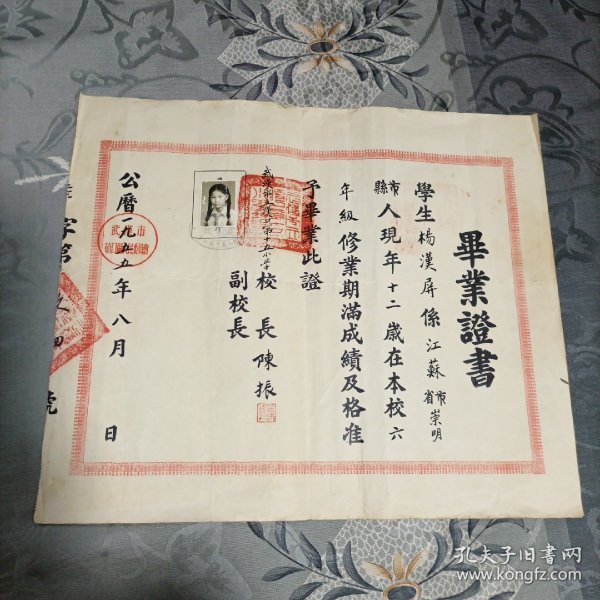 畢業證書
學生楊漢屏係江蘇省市崇明
縣市人現年十二歲在本校六
年級修業期滿成績及格准
予畢業此證
校長陳振
副校長
公曆一九五五年八月 日
字第
號
孔夫子旧书网
www.kongfz.com